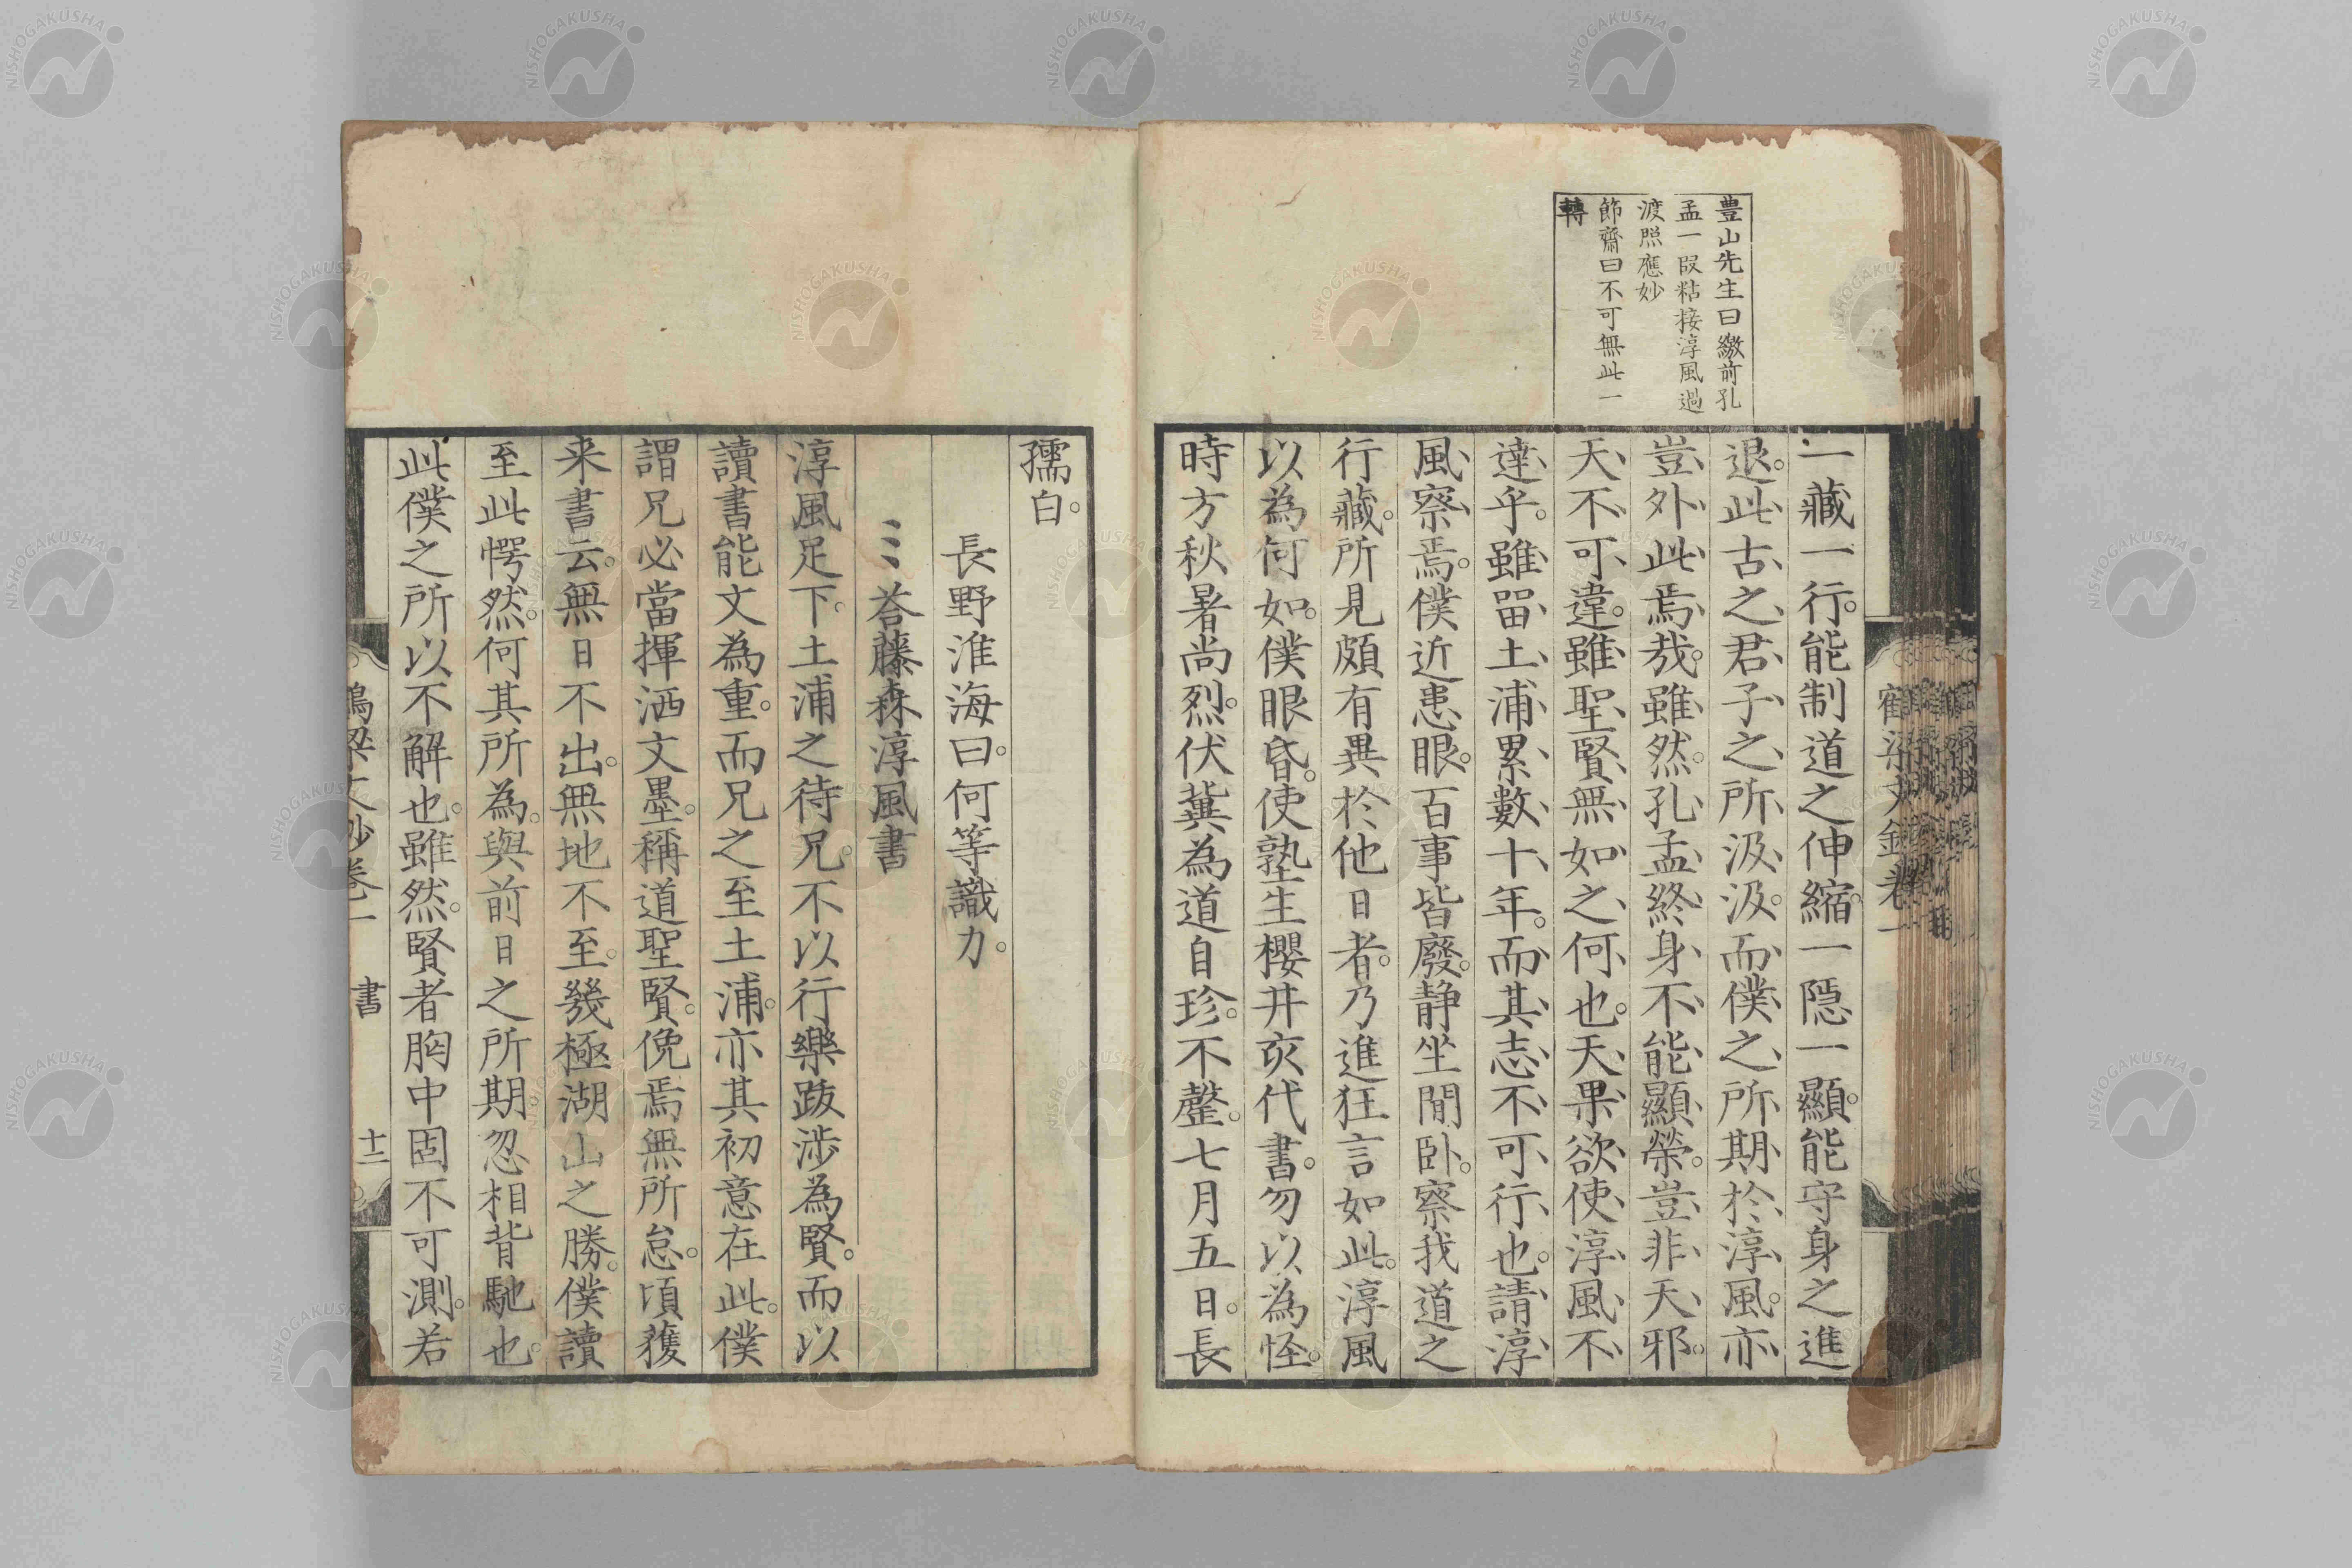 豊山先生曰繳前孔
孟一段粘接淳風過
渡照應妙
節齋曰不可無此一
轉
一藏一行。能制道之伸縮。一隱一顯。能守身之進
退。此古之君子之所汲汲。而僕之所期於淳風。亦
豈外此焉哉。雖然。孔孟終身不能顯榮。豈非天邪。
天不可違。雖聖賢無如之何也。天果欲使淳風不
達乎。雖畱土浦累數十年。而其志不可行也。請淳
風察焉。僕近患眼。百事皆廢。静坐閒臥。察我道之
行藏。所見頗有異於他日者。乃進狂言如此。淳風
以為何如。僕眼昏。使塾生櫻井亥代書。勿以為怪。
時方秋暑尚烈。伏冀為道自珍。不罄。七月五日。長
孺白。
長野淮海曰。何等識力。
荅藤森淳風書
淳風足下。土浦之待兄。不以行樂跋涉為賢。而以
讀書能文為重。而兄之至土浦。亦其初意在此。僕
謂兄必當揮洒文墨。稱道聖賢。俛焉無所怠。頃獲
来書云。無日不出。無地不至。幾極湖山之勝。僕讀
至此愕然。何其所為。與前日之所期。忽相背馳也。
此僕之所以不解也。雖然。賢者胸中固不可測。若
鶴梁文鈔卷一
書
十二